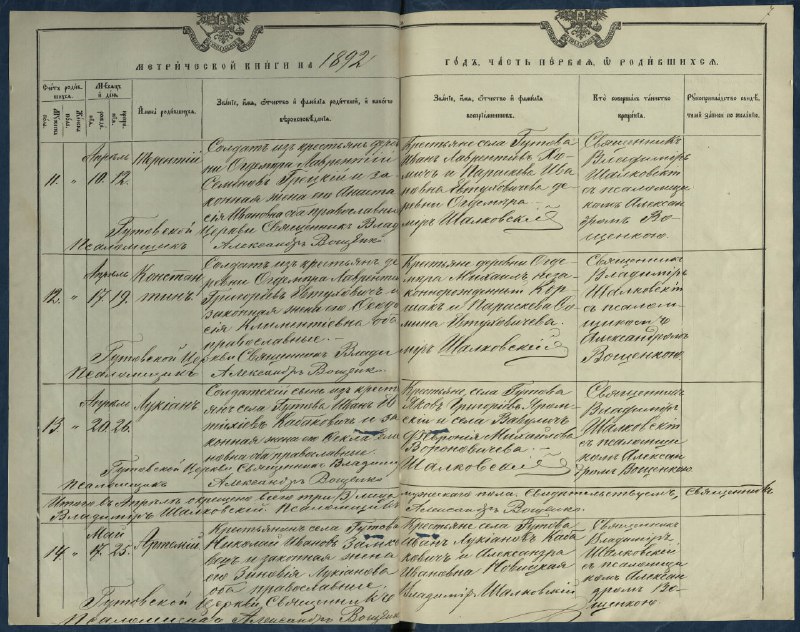 МЕТРИЧЕСКОЙ КНИГИ НА 1892 ГОДЪ, ЧАСТЬ ПЕРВАЯ, Ѡ РОДИВШИХСЯ.
Счетъ родившихся.
Мѣсяцъ и день.
Имена родившихся.
Званіе, имя, отчество и фамилія родителей, и какого вѣроисповѣданія.
Званіе, имя, отчество и фамилія воспріемниковъ.
Кто совершалъ таинство крещенія.
11. " Апрѣль 10. 12.
Солдатъ изъ крестьянъ дерев
ни Огдемера Лаврентій
Семеновъ Грецкій и за
конная жена его Анаста
сія Ивановна оба православныя
Крестьяне села Гутова
Иванъ Лаврентіевъ
и Параскева Ива
новна Евтуховичева де
ревни Огдемера.
Священникъ
Владимиръ
Шалковскій
съ псаломщи
комъ Алексан
дромъ Во
щенкою.
Гутовской Церкви Священникъ Владимиръ Шалковскій
Псаломщикъ Александръ Вощенко
12. " Апрѣль 17. 19. Констан
тинъ
Солдатъ изъ крестьянъ де
ревни Огдемера Лаврентій
Григорьевъ Евтуховичъ и
законная жена его Ѳеодо
сія Климентовна оба
православные.
Крестьяне деревни Огде
мера Михаилъ неза
коннорожденный
и Параскева Ѳо
мина Евтуховичева.
Священникъ
Владимиръ
Шалковскій
съ псалом
щикомъ
Александромъ
Вощенкою.
Гутовской Церкви Священникъ Владимиръ Шалковскій
Псаломщикъ Александръ Вощенко
13 " Апрѣль 20. 26. Лукіанъ
Солдатскій сынъ изъ крест
янъ села Гутова Иванъ Ев
тихіевъ Кабаковичъ и за
конная жена его Ѳекла
оба православные.
Крестьяне села Гутова
Яковъ Григорьевъ
и села
Ѳевронія Михайлова
Вороновичева.
Священникъ
Владимиръ
Шалковскій
съ псаломщи
комъ Алексан
дромъ Вощенкою.
Гутовской Церкви Священникъ Владимиръ Шалковскій
Псаломщикъ Александръ Вощенко
Итого въ Апрѣлѣ крещено всего три 3 лица мужескаго пола. Свидѣтельствуемъ, Священникъ
Владимиръ Шалковскій Псаломщикъ Александръ Вощенко.
14 " Май 17. 25. Артемій
Крестьянинъ села Гутова
Николай Ивановъ
и законная жена
его Зиновія Лукіанова
оба православные.
Крестьяне села Гутова
Иванъ Лукіановъ Каба
ковичъ и Александра
Ивановна Новицкая
Священникъ
Владимиръ
Шалковскій
съ псаломщи
комъ Алексан
дромъ Во
щенкою.
Гутовской Церкви, Священникъ Владимиръ Шалковскій
Псаломщикъ Александръ Вощенко